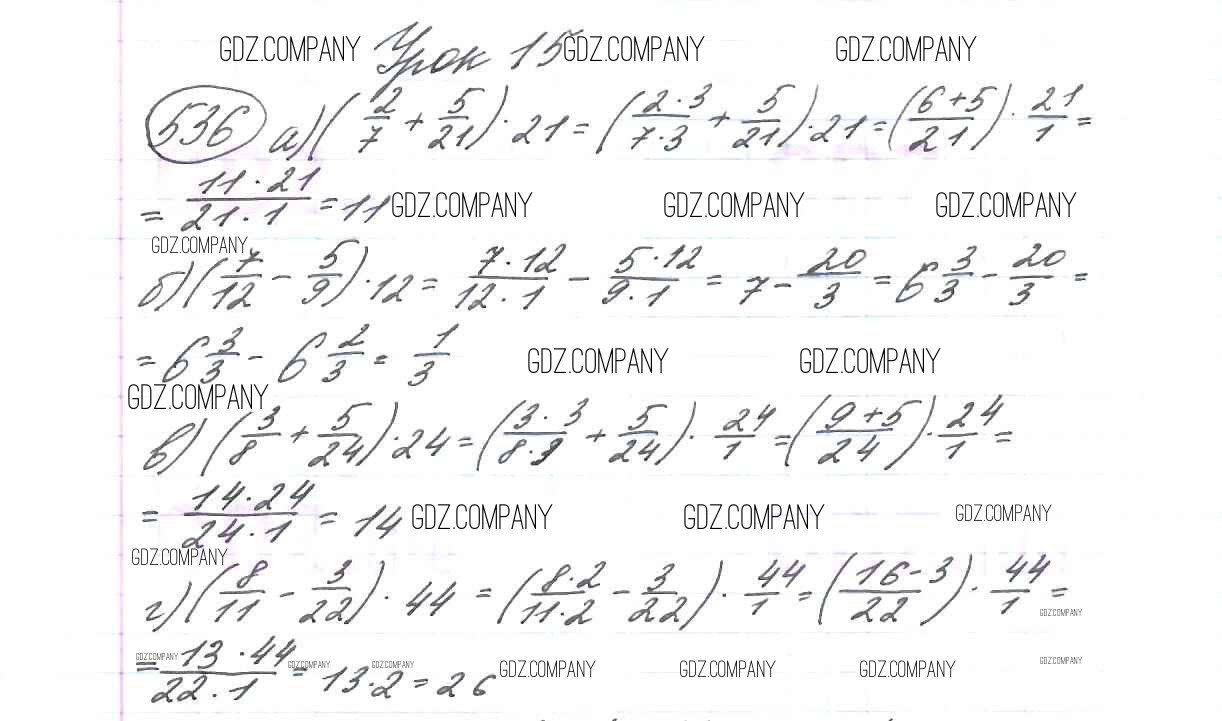 GDZ.COMPANY Урок 15 GDZ.COMPANY GDZ.COMPANY
536 а) (2/7 + 5/21) · 21 = (2·3/7·3 + 5/21) · 21 = ((6+5)/21) · 21/1 =
= 11·21/21·1 = 11 GDZ.COMPANY GDZ.COMPANY GDZ.COMPANY
GDZ.COMPANY
б) (7/12 − 5/9) · 12 = 7·12/12·1 − 5·12/9·1 = 7 − 20/3 = 6 3/3 − 20/3 =
= 6 3/3 − 6 2/3 = 1/3 GDZ.COMPANY GDZ.COMPANY
GDZ.COMPANY
в) (3/8 + 5/24) · 24 = (3·3/8·3 + 5/24) · 24/1 = ((9+5)/24) · 24/1 =
= 14·24/24·1 = 14 GDZ.COMPANY GDZ.COMPANY GDZ.COMPANY
GDZ.COMPANY
г) (8/11 − 3/22) · 44 = (8·2/11·2 − 3/22) · 44/1 = ((16−3)/22) · 44/1 =
GDZ.COMPANY
GDZ.COMPANY GDZ.COMPANY GDZ.COMPANY GDZ.COMPANY
= 13·44/22·1 = 13·2 = 26 GDZ.COMPANY GDZ.COMPANY GDZ.COMPANY